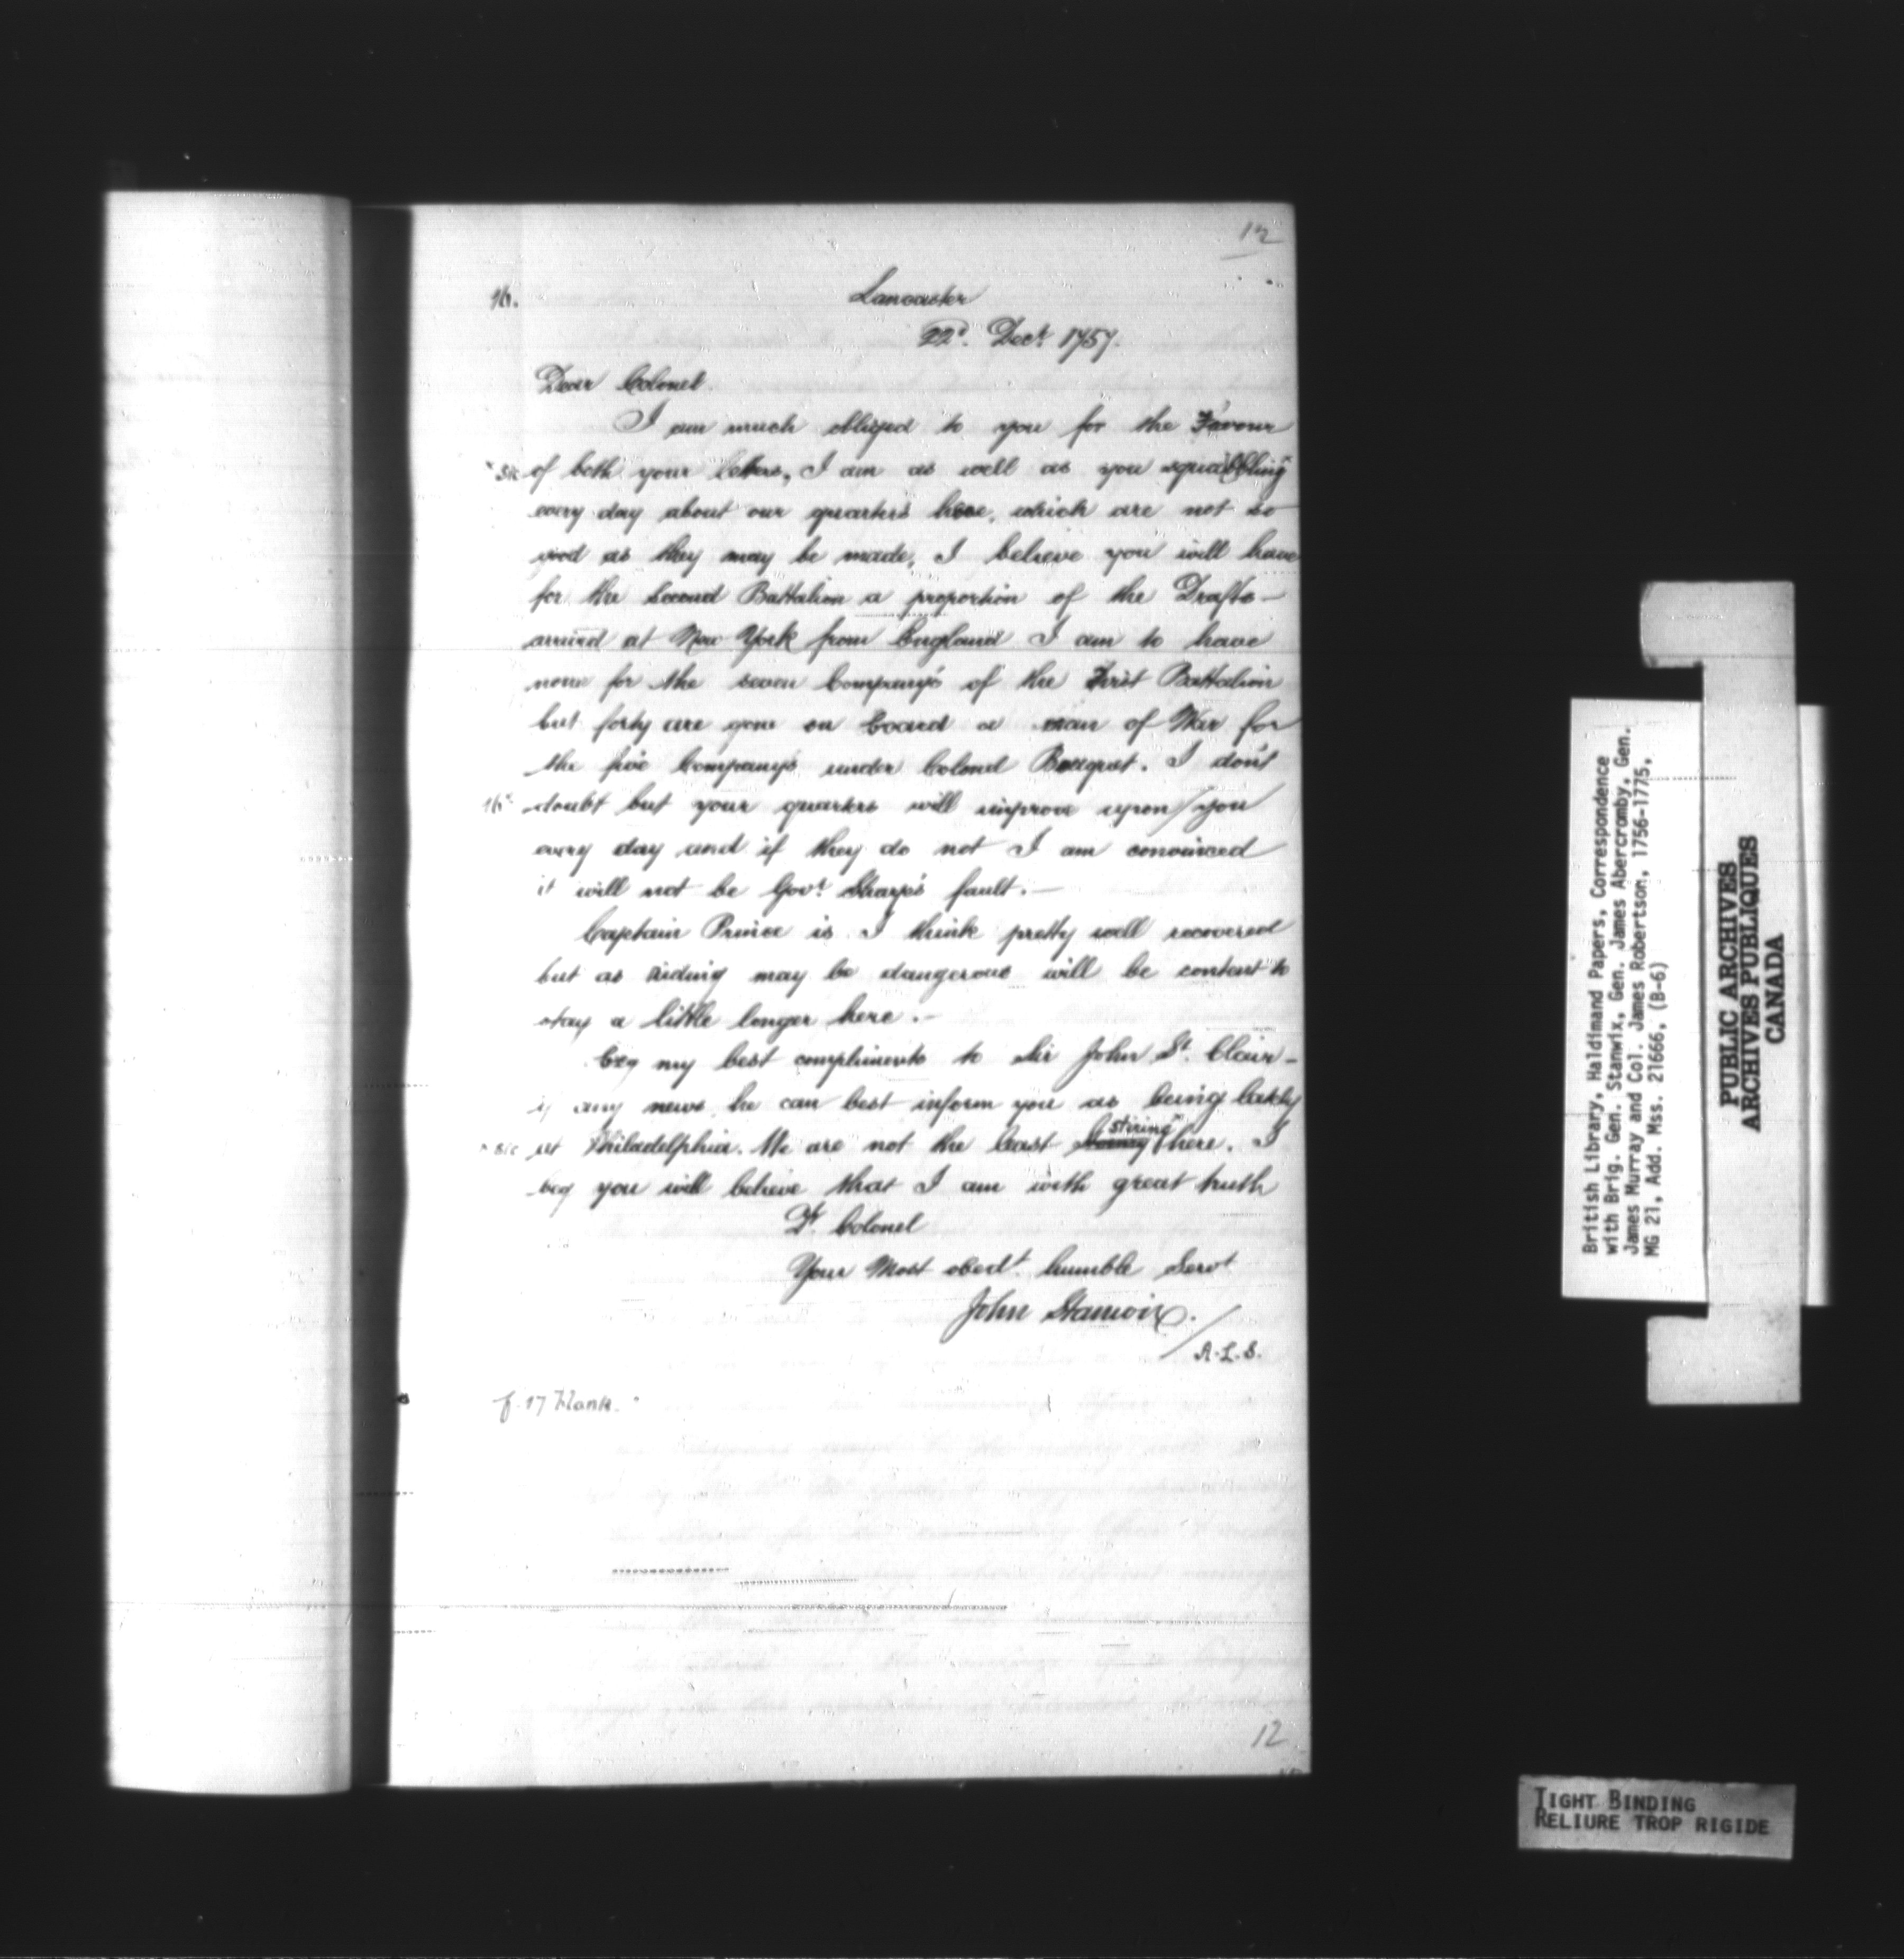 12
16.
Lancaster
22d. Decr. 1757.
Dear Colonel.
I am much obliged to you for the Favour
"sic of both your letters, I am as well as you squabbling"
every day about our quarters here, which are not so
good as they may be made, I believe you will have
for the Second Battalion a proportion of the Drafts—
arrived at New York from England I am to have
none for the seven Company's of the First Battalion
but forty are gone on board a man of War for
the five Company's under Colonel Bouquet. I don't
16b doubt but your quarters will improve upon/you
every day and if they do not I am convinced
it will not be Govr. Sharpe's fault.—
Captain Prince is I think pretty well recovered
but as riding may be dangerous will be content to
stay a little longer here.—
beg my best compliments to Sir John St. Clair—
if any news he can best inform you as being lately
stiring"
"sic at Philadelphia. We are not the least here. I
beg you will believe that I am with great truth
Dr. Colonel
Your Most obedt. humble Servt
John Stanwix.
A.L.S.
f. 17 blank.
12
British Library, Haldimand Papers, Correspondence
with Brig. Gen. Stanwix, Gen. James Abercromby, Gen.
James Murray and Col. James Robertson, 1756-1775,
MG 21, Add. Mss. 21666, (B-6)
PUBLIC ARCHIVES
ARCHIVES PUBLIQUES
CANADA
TIGHT BINDING
RELIURE TROP RIGIDE